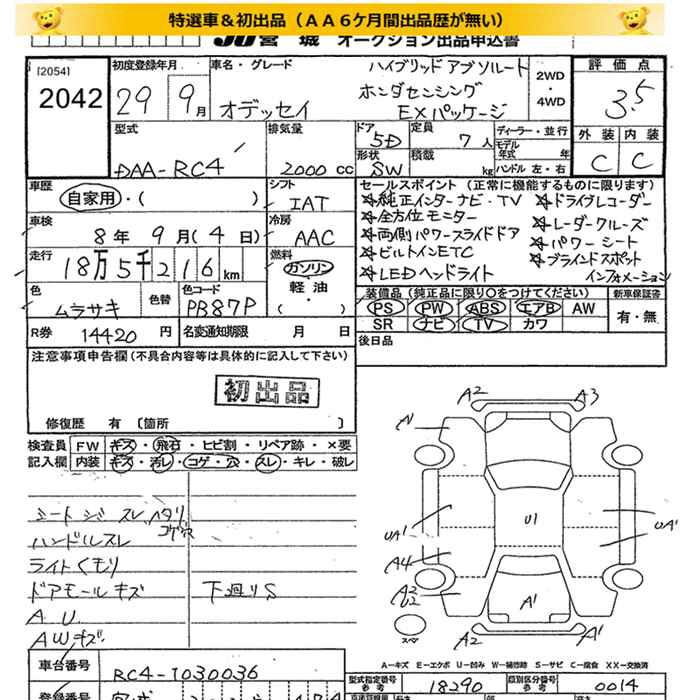 特選車＆初出品（ＡＡ６ケ月間出品歴が無い）
JU宮城 オークション出品申込書
[2054]
2042
初度登録年月
29 9月
車名・グレード
オデッセイ
ハイブリッドアブソルート
ホンダセンシング
EXパッケージ
2WD
・
4WD
評価点
3.5
外装 内装
C C
型式
DAA-RC4
排気量
2000 cc
ドア
5D
定員
7人
形状
SW
積載
kg
ディーラー・並行
モデル年式 年
ハンドル 左・右
車歴
自家用・( )
シフト
IAT
車検
8年9月(4日)
冷房
AAC
走行
18万5千216km
燃料
ガソリン
軽油
・
( )
色
ムラサキ
色替
色コード
PB87P
R券 14420円
名変通知期限 月 日
セールスポイント（正常に機能するものに限ります）
純正インターナビ・TV
全方位モニター
両側パワースライドドア
ビルトインETC
LEDヘッドライト
ドライブレコーダー
レーダークルーズ
パワーシート
ブラインドスポット
インフォメーション
装備品（純正品に限り○をつけてください）
PS PW ABS エアB AW
SR ナビ TV カワ
新車保証書
有・無
後日品
注意事項申告欄(不具合内容等は具体的に記入して下さい)
初出品
修復歴 有 〔箇所 〕
検査員
記入欄
FW キズ・飛石・ヒビ割・リペア跡・×要
内装 キズ・汚レ・コゲ・穴・スレ・キレ・破レ
シートシワ スレ ヘタリ
コゲ穴
ハンドルスレ
ライトくもり
ドアモールキズ
下廻りS
A U
AWキズ
A2
A3
A
UA1
U1
UA1
A4
A2
U2
A1
A2
A1
スペア
A－キズ E－エクボ U－凹み W－補修跡 S－サビ C－腐食 XX－交換済
車台番号
RC4-1030036
型式指定番号
参考
18290
類別区分番号
参考
0014
登録番号